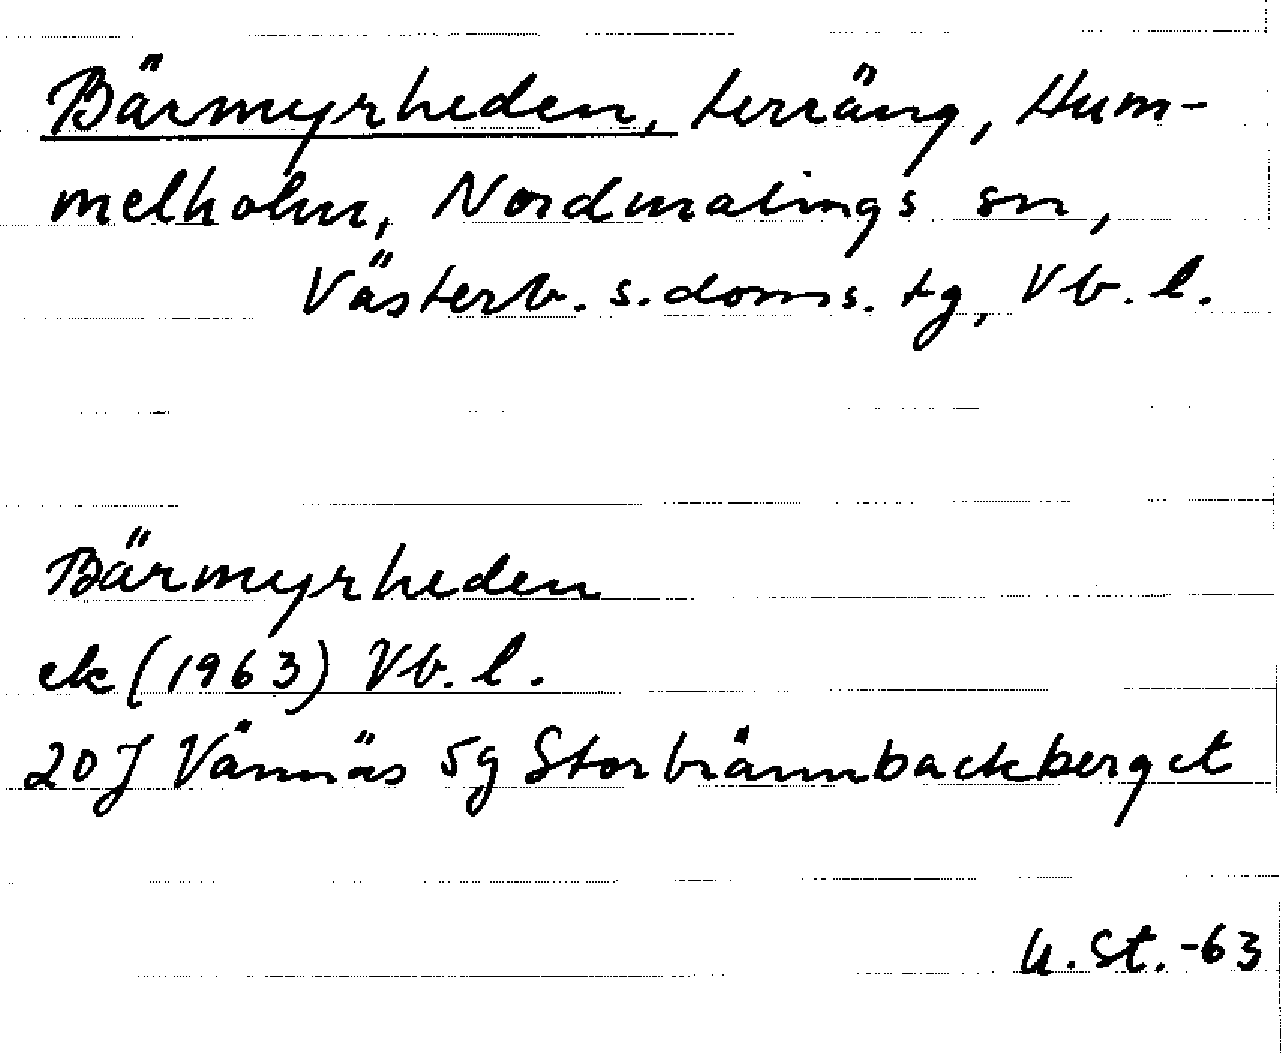 Bärmyrheden, terräng, Hum-
melholm, Nordmalings sn,
Västerb. s. doms. tg, Vb. l.
Bärmyrheden
ek (1963) Vb. l.
20 J Vännäs 5g Storbrännbackberget
U. St. -63